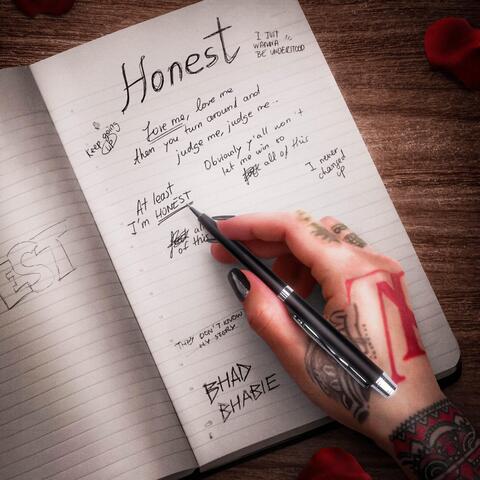 Honest
I JUST
WANNA
BE UNDERSTOOD
Keep going
Love me, love me
then you turn around and
judge me, judge me..
Obviously y'all won't
let me win so
all of this
I never
changed
up
At least
I'm HONEST
all
of this
EST
THEY DON'T KNOW
MY STORY
BHAD
BHABIE